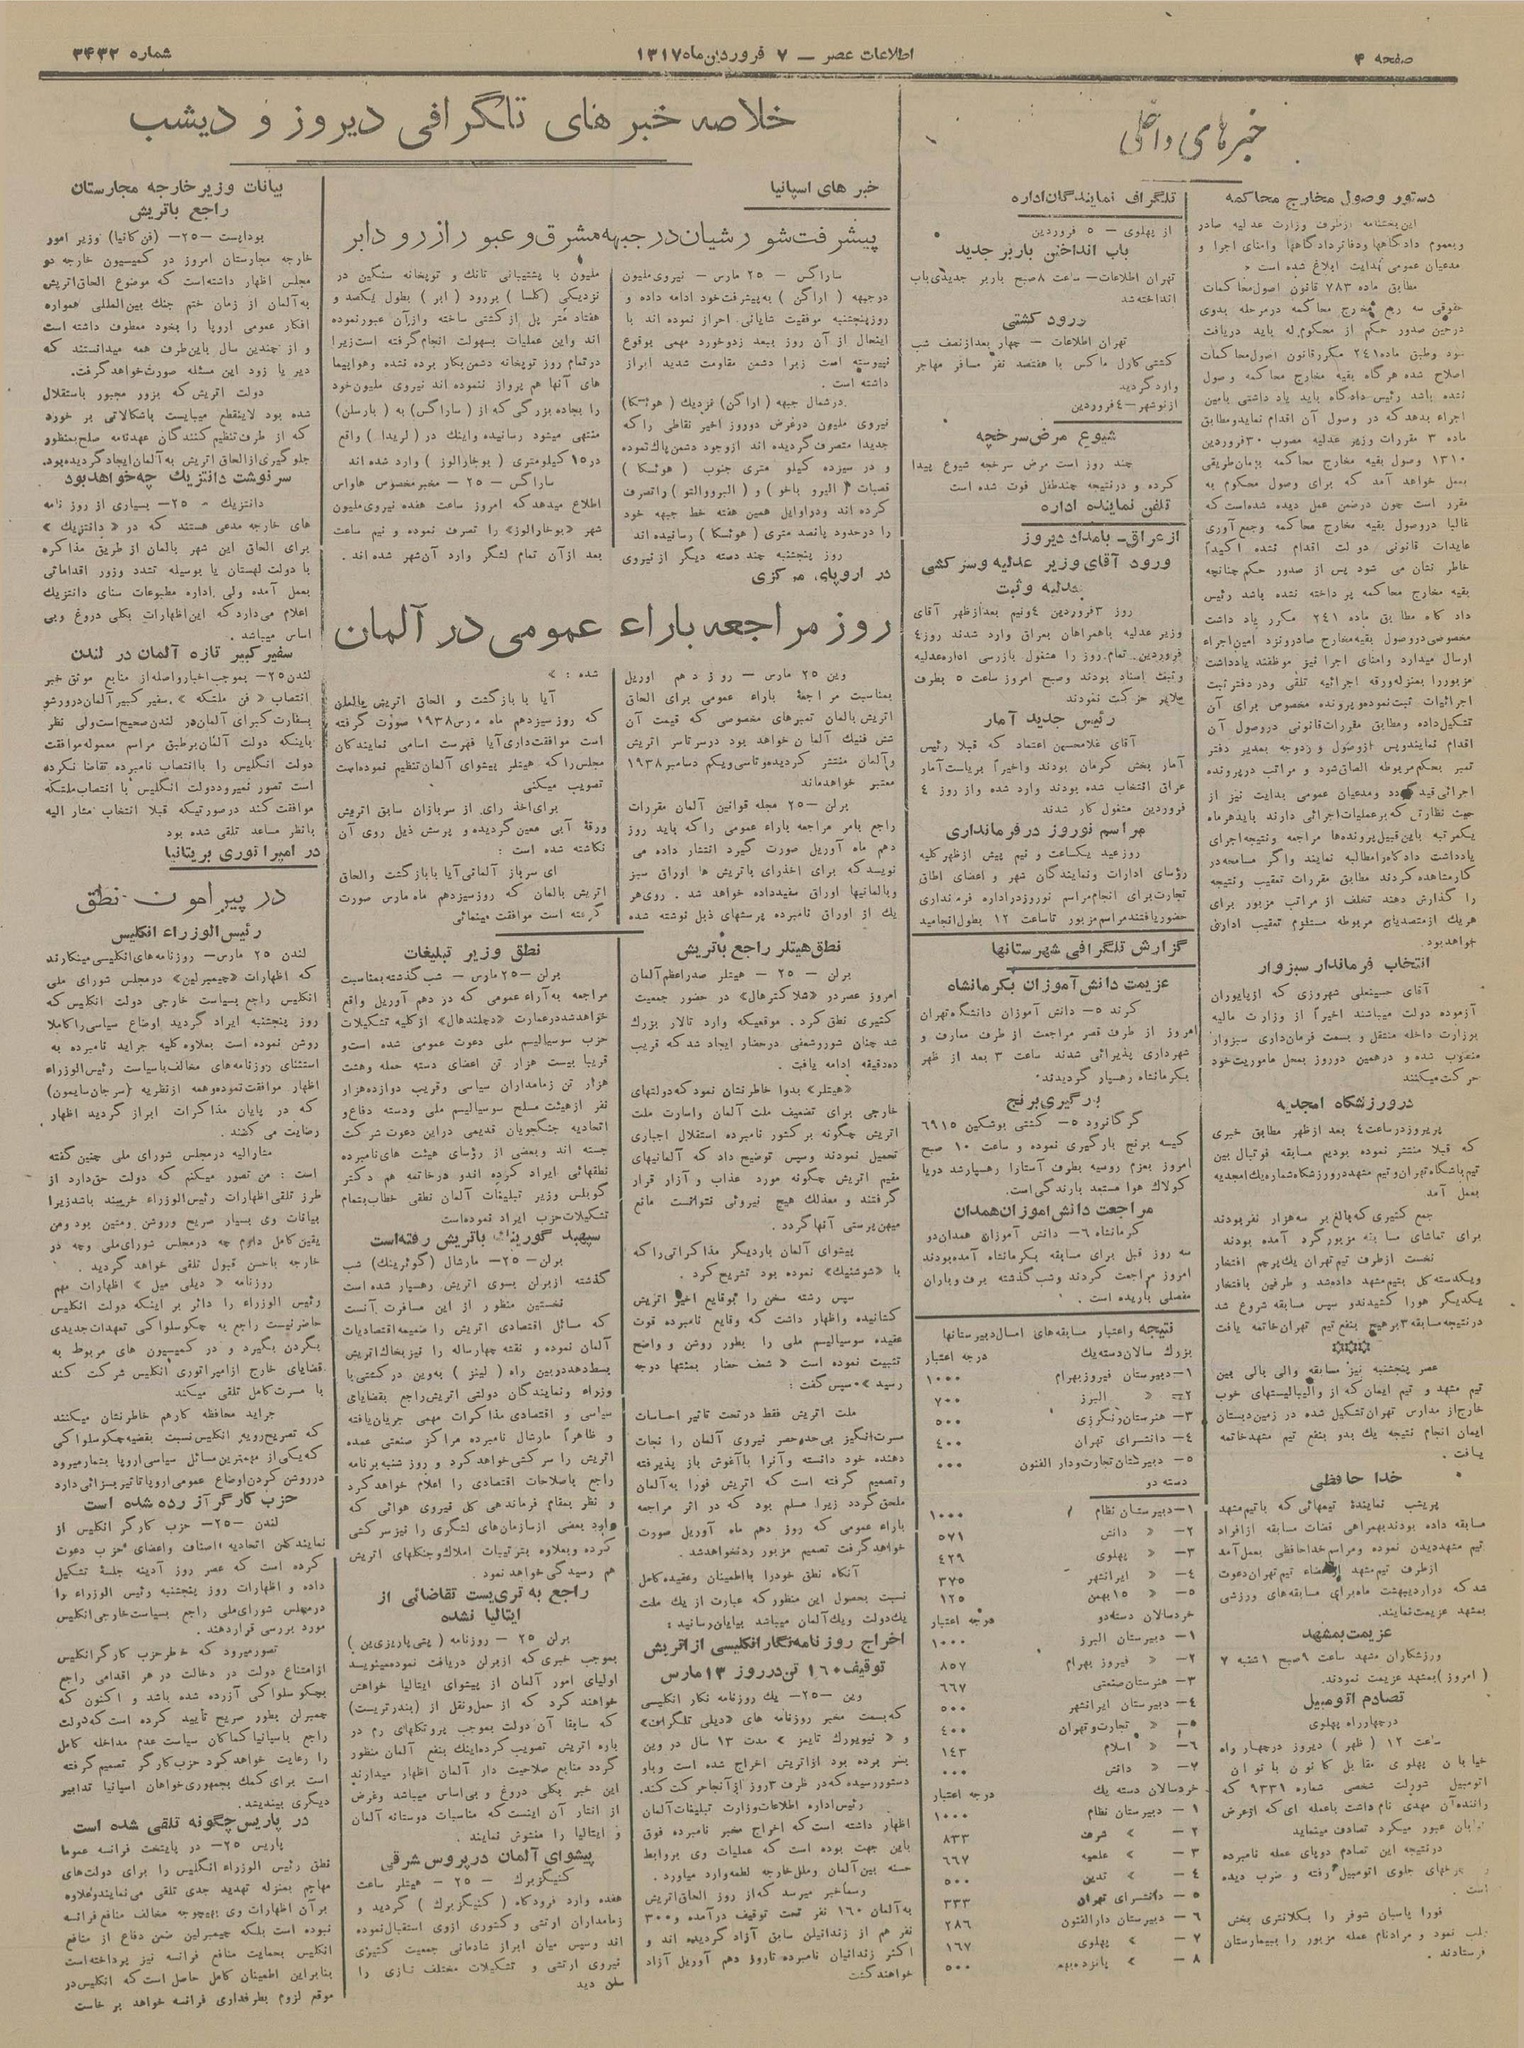 صفحه ۴
اطلاعات عصر — ۷ فروردین‌ماه ۱۳۱۷
شماره ۳۴۳۲
خبرهای داخلی
دستور وصول مخارج محاکمه
این بخشنامه ازطرف وزارت عدلیه صادر
وبعموم دادگاهها ودفاتر دادگاهها وامنای اجرا و
مدعیان عمومی بدایت ابلاغ شده است
مطابق ماده ۷۸۳ قانون اصول محاکمات
انتخاب فرماندار سبزوار
آقای حسینعلی شهروزی که ازپایوران
آزموده دولت میباشند اخیراً از وزارت مالیه
بوزارت داخله منتقل و بسمت فرمان‌داری سبزوار
منصوب شده و درهمین دوروز بمحل ماموریت خود
حرکت میکنند
درورزشگاه امجدیه
پریروز درساعت ۴ بعد ازظهر مطابق خبری
که قبلا منتشر نموده بودیم مسابقه فوتبال بین
تیم باشگاه تهران وتیم مشهد درورزشگاه شماره یك امجدیه
بعمل آمد
جمع کثیری که بالغ بر سه هزار نفر بودند
برای تماشای مسابقه مزبور گرد آمده بودند
نخست ازطرف تیم تهران یك پرچم افتخار
ویکدسته گل بتیم مشهد داده‌شد و طرفین بافتخار
یکدیگر هورا کشیدندو سپس مسابقه شروع شد
درنتیجه مسابقه ۳ برهیچ بنفع تیم تهران خاتمه یافت
عصر پنجشنبه نیز مسابقه والی بالی بین
تیم مشهد و تیم ایمان که از والیبالیستهای خوب
خارج‌از مدارس تهران تشکیل شده در زمین دبستان
ایمان انجام نتیجه یك بدو بنفع تیم مشهد خاتمه
یافت.
خدا حافظی
پریشب نمایندهٔ تیمهائی که باتیم مشهد
مسابقه داده بودند بهمراهی قضات مسابقه ازافراد
تیم مشهد دیدن نموده ومراسم خداحافظی بعمل آمد
ازطرف تیم مشهد از اعضاء تیم تهران دعوت
شد که دراردیبهشت ماه برای مسابقه‌های ورزشی
بمشهد عزیمت نمایند.
عزیمت بمشهد
ورزشکاران مشهد ساعت ۹ صبح ۱ شنبه ۷
(امروز) بمشهد عزیمت نمودند.
تصادم اتومبیل
درچهارراه پهلوی
ساعت ۱۲ (ظهر) دیروز درچهار راه
خیابان پهلوی مقابل کانون بانوان
اتومبیل شورلت شخصی شماره ۹۳۳۱ که
راننده‌آن مهدی نام داشت باعمله ای که ازعرض
خیابان عبور میکرد تصادف مینماید
درنتیجه این تصادم دوپای عمله نامبرده
چرخهای جلوی اتومبیل رفته و ضرب دیده
است.
فورا پاسبان شوفر را بکلانتری بخش
جلب نمود و مرادنام عمله مزبور را ببیمارستان
فرستادند.
تلگراف نمایندگان اداره
از پهلوی — ۵ فروردین
باب انداختن باربر جدید
تهران اطلاعات — ساعت ۸ صبح باربر جدیدی باب
انداخته شد
ورود کشتی
تهران اطلاعات — چهار بعدازنصف شب
کشتی کارل ماکس با هفتصد نفر مسافر مهاجر
وارد گردید
ازنوشهر — ۴ فروردین
شیوع مرض سرخچه
چند روز است مرض سرخچه شیوع پیدا
کرده و درنتیجه چندطفل فوت شده است
تلفن نماینده اداره
ازعراق — بامداد دیروز
ورود آقای وزیر عدلیه وسرکشی
بعدلیه و ثبت
روز ۳ فروردین ۴ ونیم بعدازظهر آقای
وزیر عدلیه باهمراهان بعراق وارد شدند روز ۴
فروردین تمام روز را مشغول بازرسی اداره عدلیه
وثبت اسناد بودند وصبح امروز ساعت ۵ بطرف
ملایر حرکت نمودند
رئیس جدید آمار
آقای غلامحسین اعتماد که قبلا رئیس
آمار بخش کرمان بودند واخیراً بریاست آمار
عراق انتخاب شده بودند وارد شده واز روز ۴
فروردین مشغول کار شدند
مراسم نوروز درفرمانداری
روزعید یکساعت و نیم پیش ازظهر کلیه
رؤسای ادارات ونمایندگان شهر و اعضای اطاق
تجارت برای انجام مراسم نوروز دراداره فرمانداری
حضور یافتند مراسم مزبور تاساعت ۱۲ بطول انجامید
گزارش تلگرافی شهرستانها
عزیمت دانش‌آموزان بکرمانشاه
کرند ۵ — دانش آموزان دانشگاه تهران
امروز از طرف قصر مراجعت از طرف معارف و
شهرداری پذیرائی شدند ساعت ۳ بعد از ظهر
بکرمانشاه رهسپار گردیدند.
بارگیری برنج
گرگانرود ۵ — کشتی بوشکین ۶۹۱۵
کیسه برنج بارگیری نموده و ساعت ۱۰ صبح
امروز بعزم روسیه بطرف آستارا رهسپار شد دریا
کولاك هوا مستعد بارندگی است.
مراجعت دانش‌آموزان همدان
کرمانشاه ۶ — دانش آموزان همدان دو
سه روز قبل برای مسابقه بکرمانشاه آمده بودند
امروز مراجعت کردند وشب گذشته برف وباران
مفصلی باریده است.
نتیجه واعتبار مسابقه‌های امسال دبیرستانها
بزرك سالان دسته یك درجه اعتبار
۱ — دبیرستان فیروز بهرام ۱۰۰۰
۲ — » البرز ۷۰۰
۳ — هنرستان رنگرزی ۵۰۰
۴ — دانشسرای تهران ۴۰۰
۵ — دبیرستان تجارت ودار الفنون ۰۰۰
دسته دو
۱ — دبیرستان نظام ۱۰۰۰
۲ — » دانش ۵۷۱
۳ — » پهلوی ۴۲۹
۴ — » ایرانشهر ۳۷۵
۵ — » ۱۵ بهمن ۱۲۵
خردسالان دسته دو درجه اعتبار
۱ — دبیرستان البرز ۱۰۰۰
۲ — » فیروز بهرام ۸۵۷
۳ — هنرستان صنعتی ۶۶۷
۴ — دبیرستان ایرانشهر ۵۰۰
۵ — » تجارت وتهران ۴۰۰
۶ — » اسلام ۱۴۳
۷ — » دانش ۰۰۰
خردسالان دسته یك درجه اعتبار
۱ — دبیرستان نظام ۱۰۰۰
۲ — » شرف ۸۳۳
۳ — » علمیه ۶۶۷
۴ — » تدین ۵۰۰
۵ — دانشسرای تهران ۳۳۳
۶ — دبیرستان دارالفنون ۲۸۶
۷ — » پهلوی ۱۶۷
۸ — » پانزده بهمن ۵۰۰
خلاصه خبرهای تلگرافی دیروز و دیشب
خبر های اسپانیا
پیشرفت شورشیان درجبهه مشرق و عبور از رود ابر
ساراگس — ۲۵ مارس — نیروی ملیون
درجبهه (اراگن) به پیشرفت خود ادامه داده و
روز پنجشنبه موفقیت شایانی احراز نموده اند با
اینحال از آن روز ببعد زدوخورد مهمی بوقوع
نپیوسته است زیرا دشمن مقاومت شدید ابراز
داشته است.
درشمال جبهه (اراگن) نزدیك (هوئسکا)
نیروی ملیون درعرض دوروز اخیر نقاطی را که
جدیدا متصرف گردیده اند ازوجود دشمن پاك نموده
و در سیزده کیلو متری جنوب (هوئسکا)
قصبات (البرو باخو) و (البرووالتو) راتصرف
کرده اند ودراوایل همین هفته خط جبهه خود
را درحدود پانصد متری (هوئسکا) رسانیده اند
روز پنجشنبه چند دسته دیگر از نیروی
ملیون با پشتیبانی تانك و توپخانه سنگین در
نزدیکی (کلسا) بررود (ابر) بطول یکصد و
هفتاد متر پل از کشتی ساخته وازآن عبورنموده
اند واین عملیات بسهولت انجام گرفته است زیرا
درتمام روز توپخانه دشمن بکار برده نشده وهواپیما
های آنها هم پرواز ننموده اند نیروی ملیون خود
را بجاده بزرگی که از (ساراگس) به (بارسلن)
منتهی میشود رسانیده واینك در (لریدا) واقع
در ۱۵ کیلومتری (بوخارالوز) وارد شده اند
ساراگس — ۲۵ — مخبر مخصوص هاواس
اطلاع میدهد که امروز ساعت هفده نیروی ملیون
شهر «بوخارالوز» را تصرف نموده و نیم ساعت
بعد ازآن تمام لشگر وارد آن شهر شده اند.
در اروپای مرکزی
روز مراجعه بآراء عمومی در آلمان
وین ۲۵ مارس — روز دهم اوریل
بمناسبت مراجعهٔ بآراء عمومی برای الحاق
اتریش بآلمان تمبرهای مخصوصی که قیمت آن
شش فنیك آلمان خواهد بود درسرتاسر اتریش
وآلمان منتشر گردیده وتاسی ویکم دسامبر ۱۹۳۸
معتبر خواهدماند
برلن — ۲۵ مجله قوانین آلمان مقررات
راجع بامر مراجعه بآراء عمومی راکه باید روز
دهم ماه آوریل صورت گیرد انتشار داده می
نویسد که برای اخذرای باتریش ها اوراق سبز
وبآلمانیها اوراق سفیدداده خواهد شد. روی هر
یك از اوراق نامبرده پرسشهای ذیل نوشته شده
شده: »
آیا با بازگشت و الحاق اتریش بآلمان
که روز سیزدهم ماه مارس ۱۹۳۸ صورت گرفته
است موافقت داری آیا فهرست اسامی نمایندگان
مجلس را که هیتلر پیشوای آلمان تنظیم نموده است
تصویب میکنی
برای اخذ رای از سربازان سابق اتریش
ورقهٔ آبی معین گردیده و پرسش ذیل روی آن
نگاشته شده است:
ای سرباز آلمانی آیا بابازگشت والحاق
اتریش بآلمان که روز سیزدهم ماه مارس صورت
گرفته است موافقت مینمائی
نطق هیتلر راجع باتریش
برلن — ۲۵ — هیتلر صدراعظم آلمان
امروز عصر در «شلاکترهال» در حضور جمعیت
کثیری نطق کرد. موقعیکه وارد تالار بزرك
شد چنان شوروشعفی درحضار ایجاد شد که قریب
ده دقیقه ادامه یافت.
«هیتلر» بدوا خاطرنشان نمود که دولتهای
خارجی برای تضعیف ملت آلمان واسارت ملت
اتریش چگونه برکشور نامبرده استقلال اجباری
تحمیل نمودند وسپس توضیح داد که آلمانیهای
مقیم اتریش چگونه مورد عذاب و آزار قرار
گرفتند و معذلك هیچ نیروئی نتوانست مانع
میهن پرستی آنها گردد.
پیشوای آلمان باردیگر مذاکراتی راکه
با «شوشنیك» نموده بود تشریح کرد.
سپس رشته سخن را بوقایع اخیر اتریش
کشانیده واظهار داشت که وقایع نامبرده قوت
عقیده سوسیالیسم ملی را بطور روشن و واضح
تثبیت نموده است «شعف حضار بمنتها درجه
رسید» سپس گفت:
ملت اتریش فقط درتحت تاثیر احساسات
مسرت‌انگیز بی‌حدوحصر نیروی آلمان را نجات
دهنده خود دانسته وآنرا باآغوش باز پذیرفته
وتصمیم گرفته است که اتریش فورا به آلمان
ملحق گردد زیرا مسلم بود که در اثر مراجعه
بآراء عمومی که روز دهم ماه آوریل صورت
خواهد گرفت تصمیم مزبور ردنخواهدشد.
آنگاه نطق خودرا بااطمینان وعقیده کامل
نسبت بحصول این منظور که عبارت از یك ملت
یك دولت ویك آلمان میباشد بپایان رسانید:
اخراج روزنامه‌نگار انگلیسی از اتریش
توقیف ۱۶۰ تن درروز ۱۳ مارس
وین — ۲۵ — یك روزنامه نگار انگلیسی
که بسمت مخبر روزنامه های «دیلی تلگراف»
و «نیویورك تایمز» مدت ۱۳ سال در وین
بسر برده بود ازاتریش اخراج شده است وباو
دستور رسیده که در ظرف ۳ روز از آنجا حرکت کند.
رئیس اداره اطلاعات وزارت تبلیغات آلمان
اظهار داشته است که اخراج مخبر نامبرده فوق
باین جهت بوده است که عملیات وی بروابط
حسنه بین آلمان وملل خارجه لطمه وارد میاورد.
رسماخبر میرسد که از روز الحاق اتریش
به آلمان ۱۶۰ نفر تحت توقیف درآمده و ۳۰۰
نفر هم از زندانیان سابق آزاد گردیده اند و
اکثر زندانیان نامبرده تاروز دهم آوریل آزاد
خواهند گشت
نطق وزیر تبلیغات
برلن — ۲۵ مارس — شب گذشته بمناسبت
مراجعه به آراء عمومی که در دهم آوریل واقع
خواهد شد درعمارت «دچلندهال» ازکلیه تشکیلات
حزب سوسیالیسم ملی دعوت عمومی شده است و
قریبا بیست هزار تن اعضای دسته حمله وهشت
هزار تن زمامداران سیاسی وقریب دوازده هزار
نفر ازهیئت مسلح سوسیالیسم ملی ودسته دفاع و
اتحادیه جنگجویان قدیمی دراین دعوت شرکت
جسته اند وبعضی از رؤسای هیئت های نامبرده
نطقهائی ایراد کرده اندو درخاتمه هم دکتر
گوبلس وزیر تبلیغات آلمان نطقی خطاب بتمام
تشکیلات حزب ایراد نموده است
سپهبد گورینك باتریش رفته است
برلن — ۲۵ — مارشال (گوئرینك) شب
گذشته ازبرلن بسوی اتریش رهسپار شده است
نخستین منظور از این مسافرت آنست
که مسائل اقتصادی اتریش را ضمیمه اقتصادیات
آلمان نموده و نقشه چهارساله را نیز بخاك اتریش
بسط دهد دربین راه (لینز) به وین در کشتی با
وزراء ونمایندگان دولتی اتریش راجع بقضایای
سیاسی و اقتصادی مذاکرات مهمی جریان یافته
و ظاهراً مارشال نامبرده مراکز صنعتی عمده
اتریش را سرکشی خواهد کرد و روز شنبه برنامه
راجع باصلاحات اقتصادی را اعلام خواهد کرد
و نظر بمقام فرماندهی کل نیروی هوائی که
دارد بعضی ازسازمان‌های لشگری را نیز سرکشی
کرده وبعلاوه بترتیبات املاك وجنگلهای اتریش
هم رسیدگی خواهد نمود.
راجع به تری‌یست تقاضائی از
ایتالیا نشده
برلن ۲۵ — روزنامه (پتی پاریزی‌ین)
بموجب خبری که ازبرلن دریافت نموده مینویسد
اولیای امور آلمان از پیشوای ایتالیا خواهش
خواهند کرد که از حمل ونقل از (بندر تریست)
که سابقا آن دولت بموجب پروتکلهای رم در
باره اتریش تصویب کرده اینك بنفع آلمان منظور
گردد منابع صلاحیت دار آلمان اظهار میدارند
این خبر بکلی دروغ و بی‌اساس میباشد وغرض
از انتشار آن اینست که مناسبات دوستانه آلمان
و ایتالیا را مغشوش نمایند.
پیشوای آلمان درپروس شرقی
کنیگزبرك — ۲۵ — هیتلر ساعت
هفده وارد فرودگاه (کنیگزبرك) گردید و
زمامداران ارتشی وکشوری ازوی استقبال نموده
اند وسپس میان ابراز شادمانی جمعیت کثیری
نیروی ارتشی و تشکیلات مختلف نازی را
سان دید
بیانات وزیر خارجه مجارستان
راجع باتریش
بوداپست — ۲۵ — (فن کانیا) وزیر امور
خارجه مجارستان امروز در کمیسیون خارجه دو
مجلس اظهار داشته است که موضوع الحاق اتریش
به آلمان از زمان ختم جنك بین‌المللی همواره
افکار عمومی اروپا را بخود معطوف داشته است
و از چندین سال باین طرف همه میدانستند که
دیر یا زود این مسئله صورت خواهد گرفت.
دولت اتریش که بزور مجبور باستقلال
شده بود لاینقطع میبایست باشکالاتی بر خورد
که از طرف تنظیم کنندگان عهدنامه صلح بمنظور
جلوگیری از الحاق اتریش به آلمان ایجاد گردیده بود.
سرنوشت دانتزیك چه خواهد بود
دانتزیك — ۲۵ — بسیاری از روز نامه
های خارجه مدعی هستند که در «دانتزیك»
برای الحاق این شهر بآلمان از طریق مذاکره
با دولت لهستان یا بوسیله تشدد وزور اقداماتی
بعمل آمده ولی اداره مطبوعات سنای دانتزیك
اعلام می‌دارد که این اظهارات بکلی دروغ وبی
اساس میباشد.
سفیر کبیر تازه آلمان در لندن
لندن ۲۵ — بموجب اخبار واصله از منابع موثق خبر
انتصاب «فن ملتکه» سفیر کبیر آلمان درورشو
بسفارت کبرای آلمان در لندن صحیح است ولی نظر
باینکه دولت آلمان برطبق مراسم معموله موافقت
دولت انگلیس را باانتصاب نامبرده تقاضا نکرده
است تصور نمیرود دولت انگلیس با انتصاب ملتکه
موافقت کند درصورتیکه قبلا انتخاب مشار الیه
بانظر مساعد تلقی شده بود
در امپراتوری بریتانیا
در پیرامون نطق
رئیس‌الوزراء انگلیس
لندن ۲۵ مارس — روزنامه های انگلیسی مینگارند
که اظهارات «چیمبرلین» درمجلس شورای ملی
انگلیس راجع بسیاست خارجی دولت انگلیس که
روز پنجشنبه ایراد گردید اوضاع سیاسی را کاملا
روشن نموده است بعلاوه کلیه جراید نامبرده به
استثنای روزنامه‌های مخالف باسیاست رئیس‌الوزراء
اظهار موافقت نموده وهمه ازنظریه (سرجان سایمون)
که در پایان مذاکرات ابراز گردید اظهار
رضایت می کنند.
مشارالیه درمجلس شورای ملی چنین گفته
است: من تصور میکنم که دولت حق دارد از
طرز تلقی اظهارات رئیس الوزراء خرسند باشد زیرا
بیانات وی بسیار صریح وروشن ومتین بود ومن
یقین کامل دارم چه درمجلس شورای ملی وچه در
خارجه باحسن قبول تلقی خواهد گردید.
روزنامه «دیلی میل» اظهارات مهم
رئیس الوزراء را دائر بر اینکه دولت انگلیس
حاضر نیست راجع به چکوسلواکی تعهدات جدیدی
بگردن بگیرد و در کمیسیون های مربوط به
قضایای خارج ازامپراتوری انگلیس شرکت کند
با مسرت کامل تلقی میکند
جراید محافظه کارهم خاطرنشان میکنند
که تصریح رویه انگلیس نسبت بقضیه چکوسلواکی
که یکی از مهمترین مسائل سیاسی اروپا بشمار میرود
درروشن کردن اوضاع عمومی اروپا تاثیر بسزائی دارد
حزب کارگر آزرده شده است
لندن — ۲۵ — حزب کارگر انگلیس از
نمایندگان اتحادیه اصناف واعضای حزب دعوت
کرده است که عصر روز آدینه جلسهٔ تشکیل
داده و اظهارات روز پنجشنبه رئیس الوزراء را
درمجلس شورای‌ملی راجع بسیاست خارجی انگلیس
مورد بررسی قراردهند.
تصور میرود که خاطر حزب کارگر انگلیس
ازامتناع دولت در دخالت در هر اقدامی راجع
بچکوسلواکی آزرده شده باشد و اکنون که
چمبرلن بطور صریح تأیید کرده است که دولت
راجع باسپانیا کماکان سیاست عدم مداخله کامل
را رعایت خواهد کرد حزب کارگر تصمیم گرفته
است برای کمك بجمهوری‌خواهان اسپانیا تدابیر
دیگری بیندیشد.
در پاریس چگونه تلقی شده است
پاریس ۲۵ — در پایتخت فرانسه عموما
نطق رئیس الوزراء انگلیس را برای دولت‌های
مهاجم بمنزله تهدید جدی تلقی می‌نمایند وعلاوه
برآن اظهارات وی بهیچوجه مخالف منافع فرانسه
نبوده است بلکه چیمبرلین ضمن دفاع از منافع
انگلیس بحمایت منافع فرانسه نیز پرداخته است
بنابراین اطمینان کامل حاصل است که انگلیس در
موقع لزوم بطرفداری فرانسه خواهد برخاست